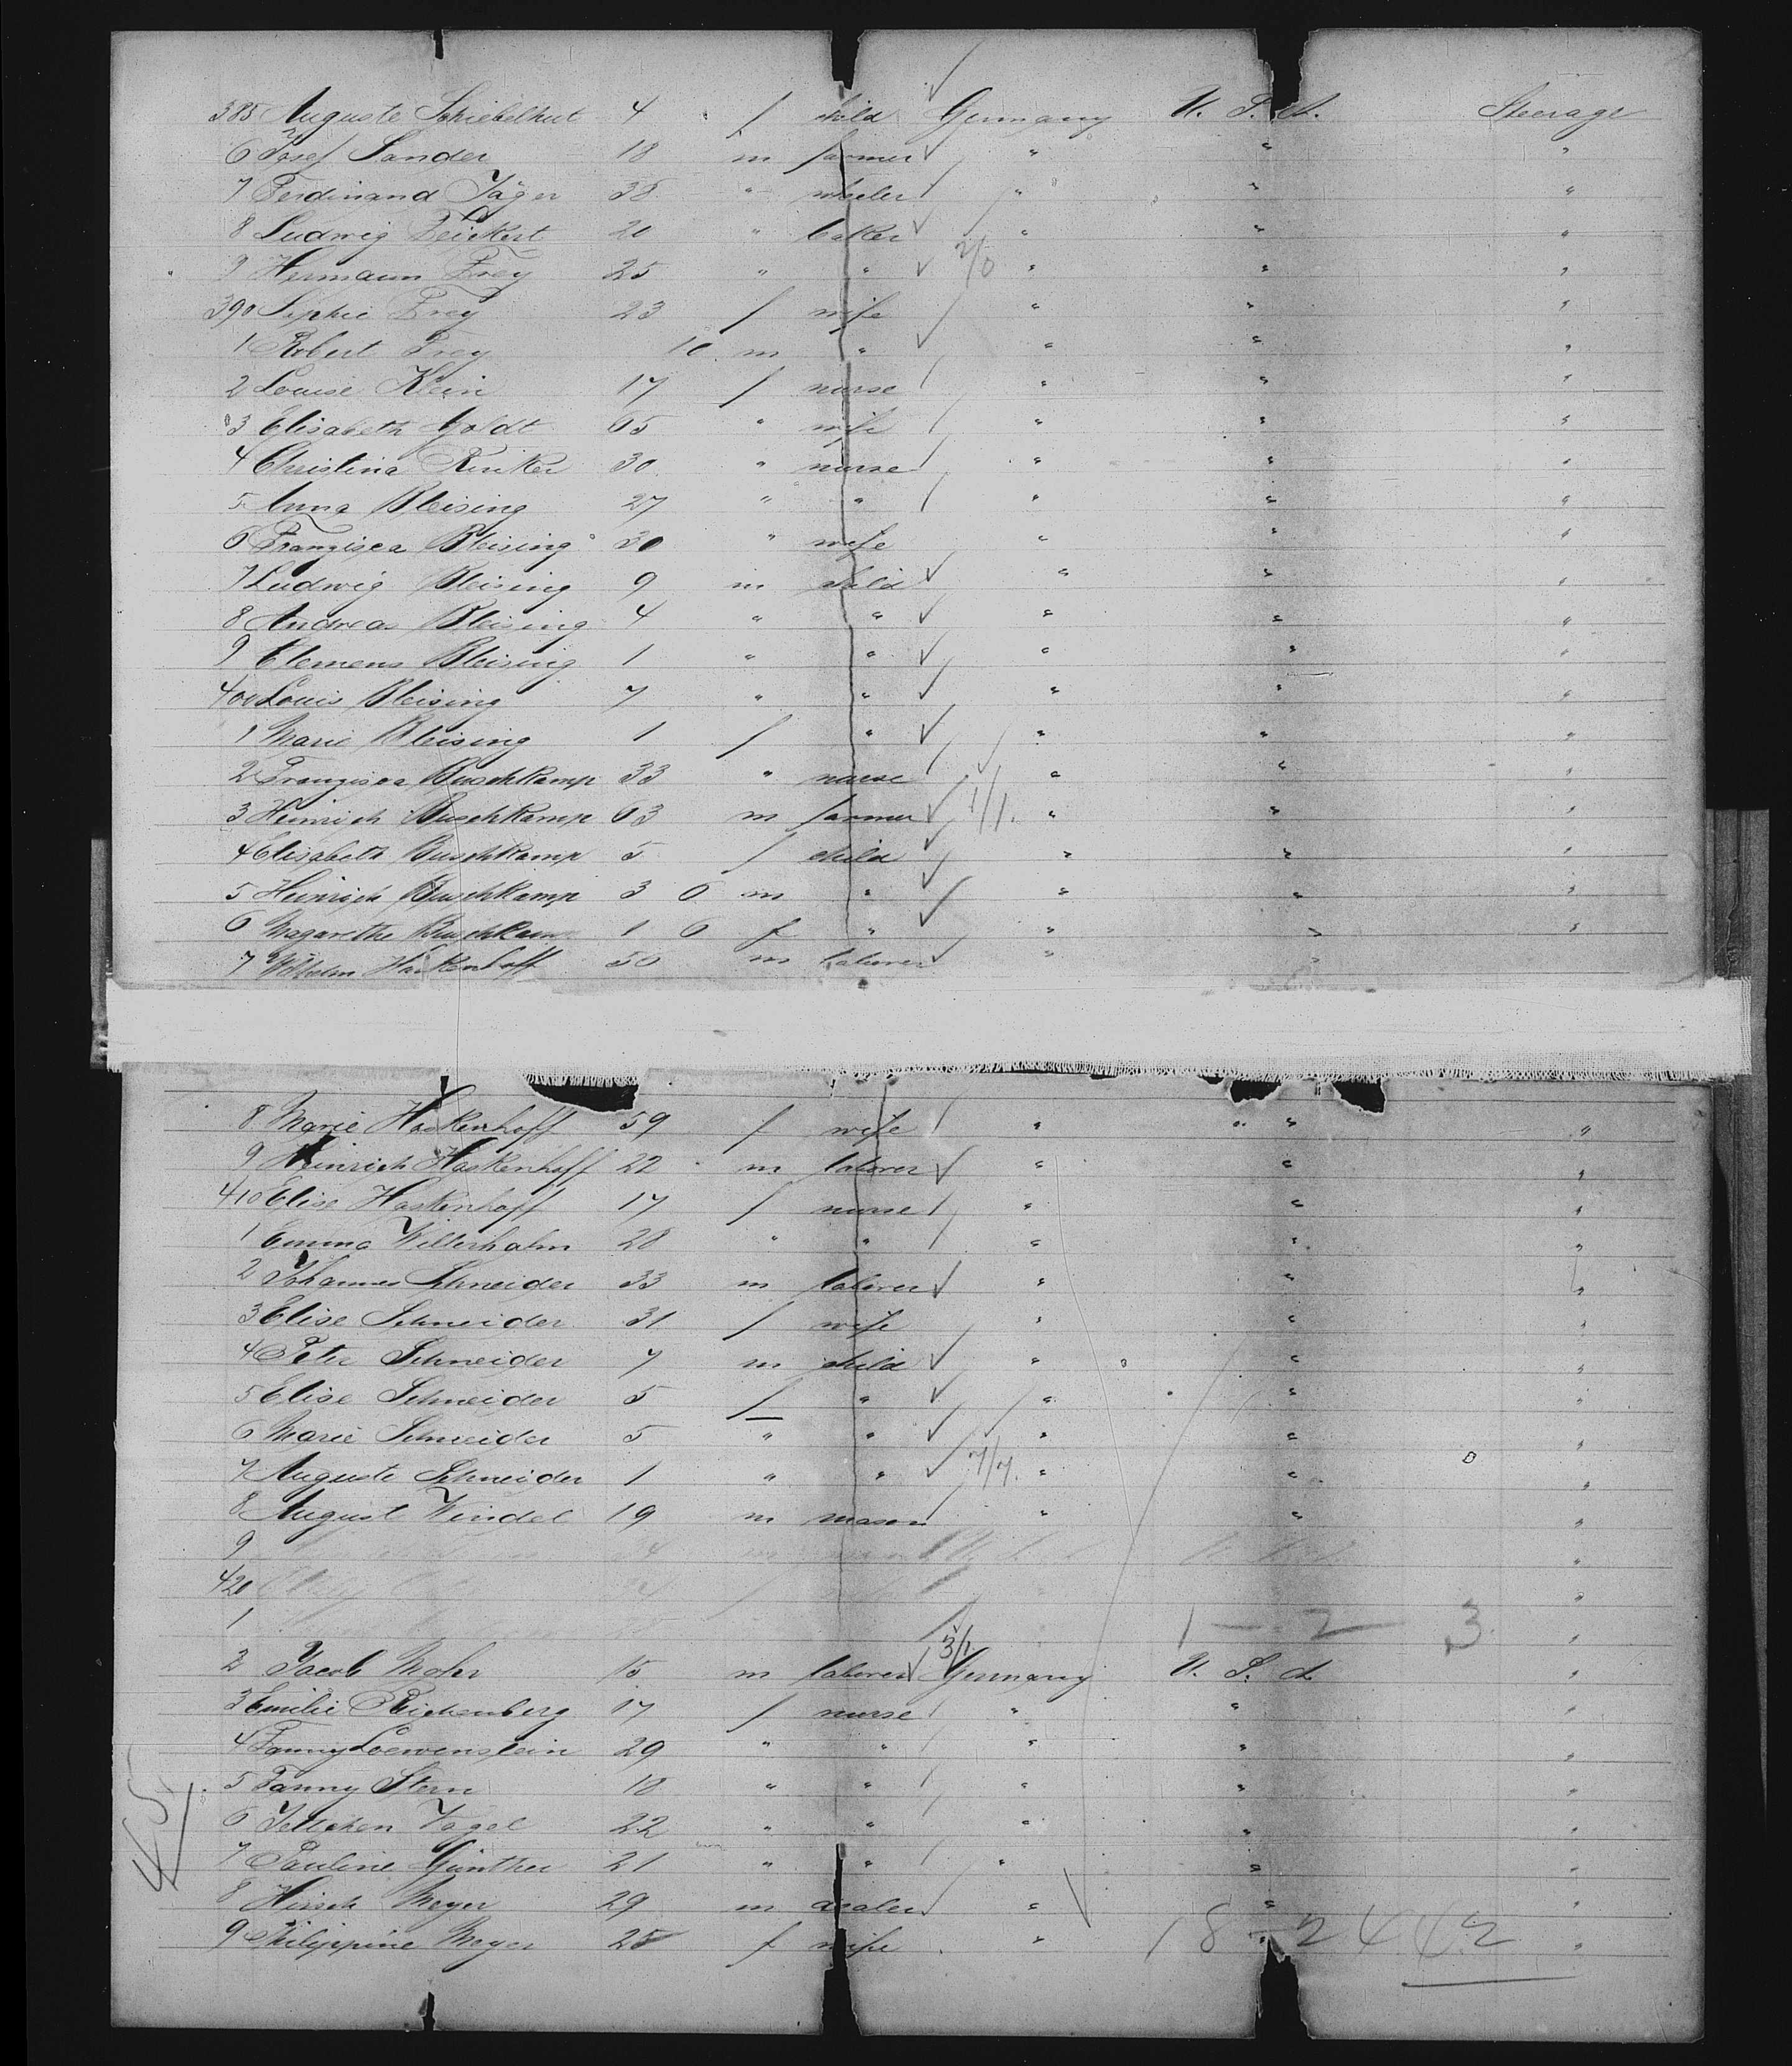 385 Auguste Schiebelhut 4 f child Germany U. S. A. Steerage
6 Josef Sander 18 m farmer " " "
7 Ferdinand Jäger 38 " " " "
8 Ludwig Zeickert 20 " baker " " "
9 Hermann Frey 25 " " 2/0 " " "
390 Sophie Frey 23 f wife " " "
1 Robert Frey 10 m " " " "
2 Louise Klein 17 f nurse " " "
3 Elisabeth Goldt 65 " wife " " "
4 Christina Rinker 30 " nurse " " "
5 Anna Bleising 27 " " " " "
6 Franzisca Bleising 30 " wife " " "
7 Ludwig Bleising 9 m child " " "
8 Andreas Bleising 4 " " " " "
9 Clemens Bleising 1 " " " " "
400 Louis Bleising 7 " " " " "
1 Marie Bleising 1 f " " " "
2 Franzisca Buschkamp 33 " nurse " " "
3 Heinrich Buschkamp 63 m farmer 1/1. " " "
4 Elisabeth Buschkamp 5 f child " " "
5 Heinrich Buschkamp 3 6 m " " " "
6 Magarethe Buschkamp 1 6 f " " " "
7 Wilhelm Haskenhoff 50 m laborer " "
8 Marie Haskenhoff 59 f wife " " "
9 Heinrich Haskenhoff 22 m laborer " " "
410 Elise Haskenhoff 17 f nurse " " "
1 Emma Willerhalm 28 " " " " "
2 Johannes Schneider 33 m laborer " " "
3 Elise Schneider 31 f wife " " "
4 Peter Schneider 7 m child " " "
5 Elise Schneider 5 f " " " "
6 Marie Schneider 5 " " " " "
7 Auguste Schneider 1 " " 7/7. " " "
8 August Windel 19 m mason " " "
9 24 m "
420 "
1 1 — 2 — 3 "
2 Jacob Mohr 15 m laborer 3/1 Germany U. S. A "
3 Emilie Reichenberg 17 f nurse " "
4 Fanny Loewenstein 29 " " " " "
5 Fanny Stern 18 " " " " "
6 Jettchen Vogel 22 " " " " "
7 Pauline Günther 21 " " " " "
8 Hirsch Meyer 29 m dealer " " "
9 Philippine Meyer 25 f wife " " "
18 — 24 42
45